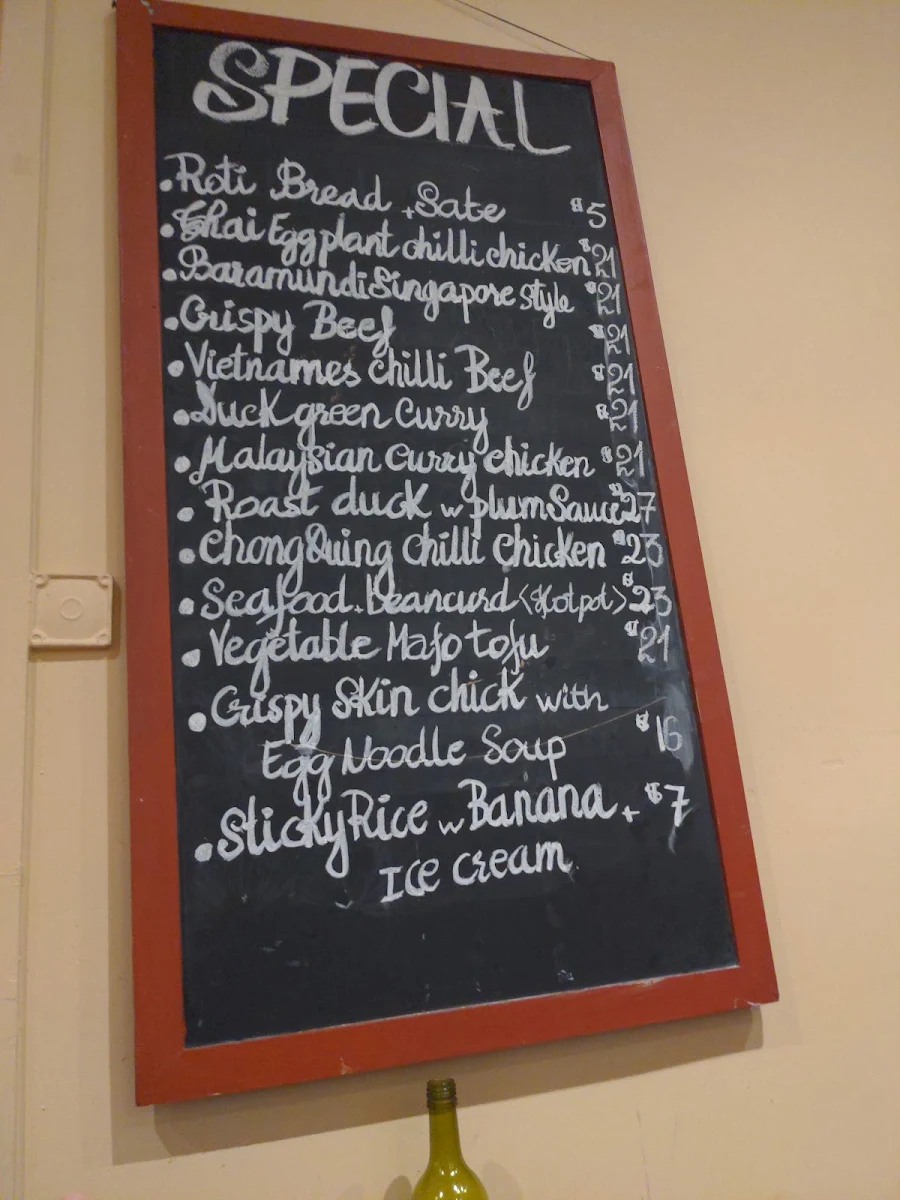 SPECIAL
• Roti Bread + Sate $5
• Thai Eggplant chilli chicken $21
• Baramundi Singapore style $21
• Crispy Beef $21
• Vietnames chilli Beef $21
• Duck green Curry $21
• Malaysian Curry chicken $21
• Roast duck w plum Sauce $27
• ChongQuing chilli chicken $23
• Seafood. beancurd <Hotpot> $23
• Vegetable Mafo tofu $21
• Crispy Skin chick with
Egg Noodle Soup $16
• Sticky Rice w Banana + $7
Ice cream